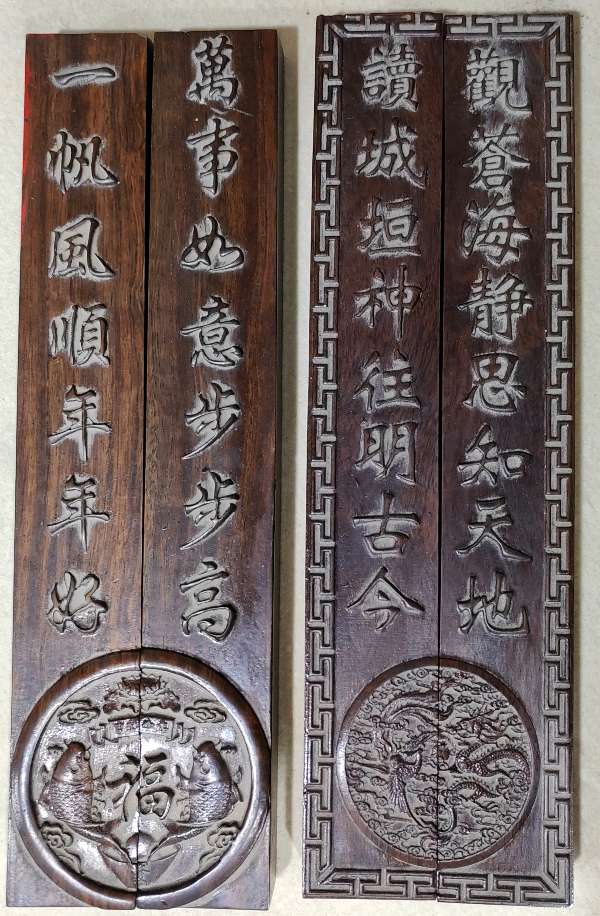 觀蒼海静思知天地
讀城垣神往明古今
萬事如意步步高
一帆風順年年好
福